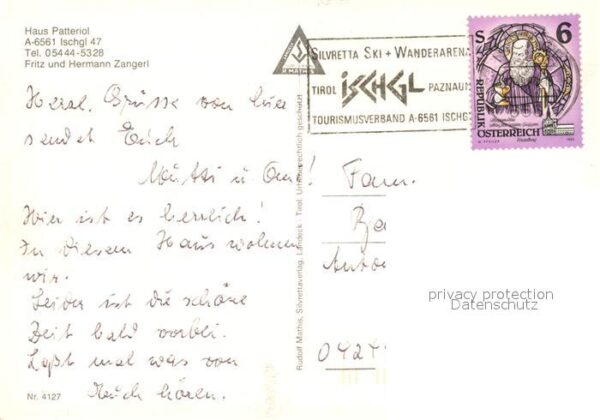 Haus Patteriol
A-6561 Ischgl 47
Tel. 05444-5328
Fritz und Hermann Zangerl
Herzl. Grüsse von hier
sendet Euch
Mutti u. Omi!
Hier ist es herrlich!
In diesem Haus wohnen
wir.
Leider ist die schöne
Zeit bald vorbei.
Laßt mal was von
Euch hören.
Nr. 4127
Rudolf Mathis, Silvrettaverlag, Landeck - Tirol. Urheberrechtlich geschützt
R. MATHIS
SILVRETTA SKI + WANDERARENA
TIROL ISCHGL PAZNAUN
TOURISMUSVERBAND A-6561 ISCHGL
S 6
REPUBLIK
ÖSTERREICH
Fam.
privacy protection
Datenschutz